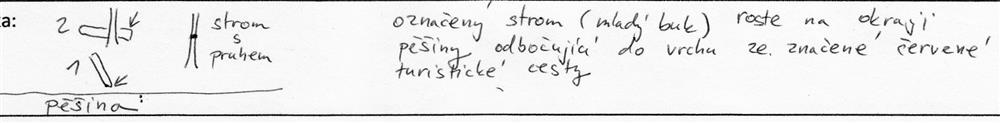 ka:
2
strom
s
pruhem
1
pěšina:
označený strom (mladý buk) roste na okraji
pěšiny odbočující do vrchu ze značené červené
turistické cesty